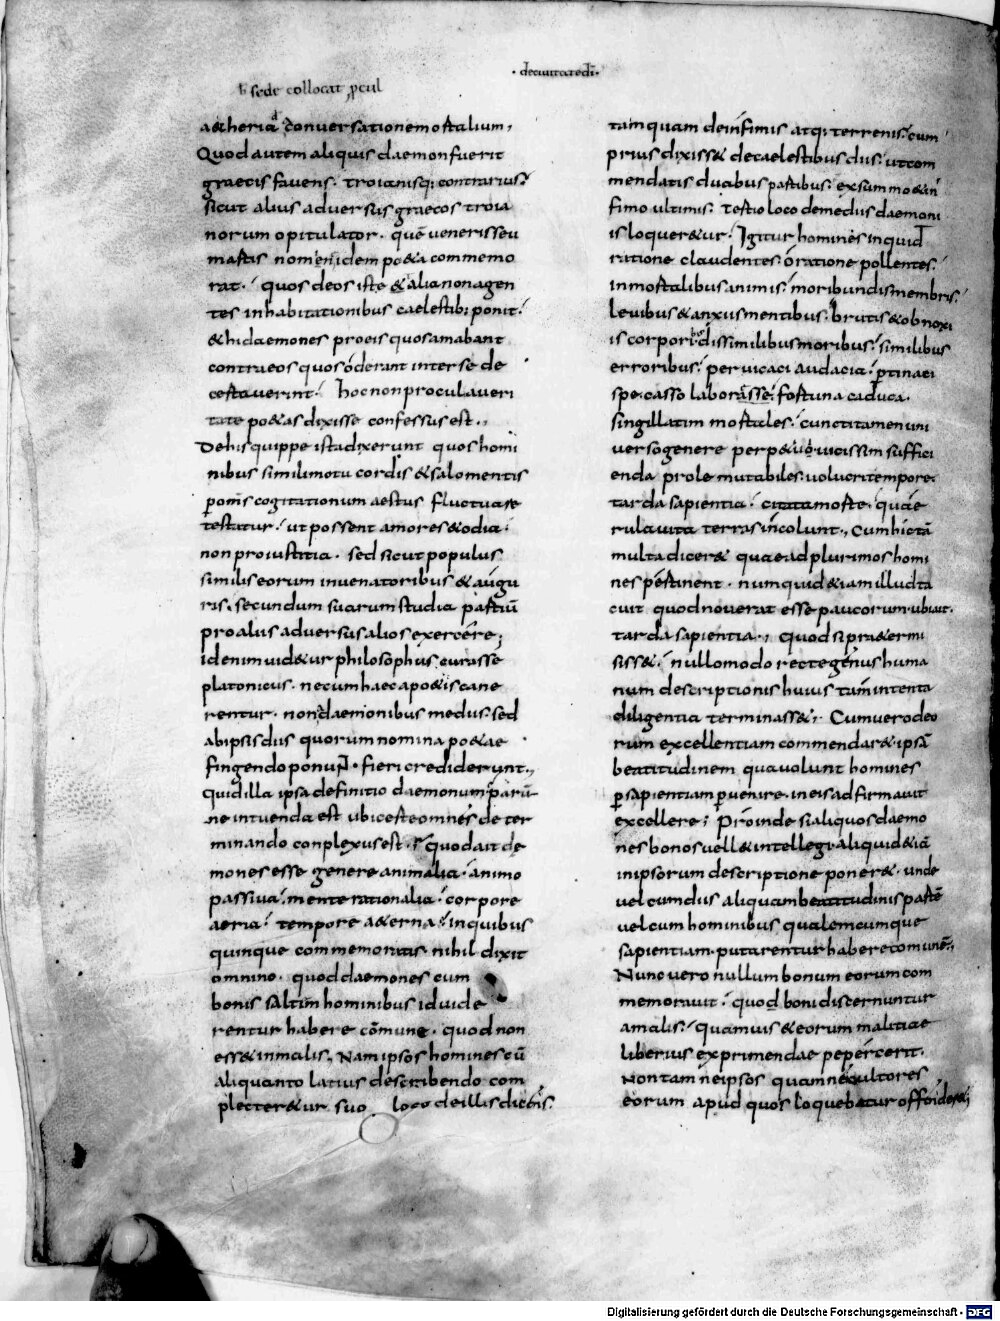 · decivitatedī ·
h sede collocat ꝓcul
a&heria conversationemortalium,
Quod autem aliquis daemon fuerit
graecis favens. troianisq; contrarius.
sicut alius adversus graecos troia
norum opitulator. quē veneris seu
martis nomen idem poeta commemo
rat. quos deos iste & alia non agen
tes inhabitationibus caelestib; ponit.
& hi daemones pro eis quos amabant
contra eos quos oderant inter se de
certaverint. hoc non procul a veri
tate po&as dixisse confessus est.,
De his quippe ista dixerunt quos homi
nibus simili motu cordis & salo mentis
ꝑ om̄s cogitationum aestus fluctuare
testatur. ut possent amores & odia.
non pro iustitia. sed sicut populus
similis eorum in venatoribus & aurigu
ris. secundum suarum studia partiū
pro aliis adversus alios exercere;
id enim vid&ur philosophus curasse
platonicus. ne cum haec a po&is cane
rentur. non daemonibus mediis. sed
ab ipsis diis quorum nomina po&ae
fingendo ponunt. fieri crederentur.,
quid illa ipsa definitio daemonum parū
ne intuenda est ubi certe omnes deter
minando conplexus est. quod ait de
mones esse genere animalia. animo
passiva. mente rationalia. corpore
aeria. tempore a&erna. in quibus
quinque commemoratis nihil dixit
omnino. quod daemones cum
bonis saltim hominibus id vide
rentur habere cōmune. quod non
ess& in malis. Nam ipsos homines cū
aliquanto latius describendo com
plecter&ur suo loco de illis dicens.
tamquam de infimis atq; terrenis. cum
prius dixiss& de caelestibus diis. ut com
mendatis duabus partibus. ex summo & in
fimo ultimis. tertio loco de mediis daemoni
is loquer&ur. Igitur homines inquid
ratione claudentes. oratione pollentes.
inmortalibus animis. moribundis membris.
levibus & anxiis mentibus. brutis & obnoxi
is corporibus dissimilibus moribus. similibus
erroribus. pervicaci audacia. ꝑtinaci
spe. casso labor& asse. fortuna caduca.
singillatim mortales. cuncti tamen uni
verso genere perp&ui. vicissim suffici
enda prole mutabiles. volucri tempore.
tarda sapientia. citata morte. quae
rula vita terras incolunt., Cum hic tā
multa dicer& quae ad plurimos homi
nes pertinent. numquid &iam illud ta
cuit quod noverat esse paucorum. ubi ait.
tarda sapientia.; quod si pra&ermi
siss&. nullo modo recte genus huma
num descriptionis huius tam intenta
diligentia terminass&. Cum vero deo
rum excellentiam commendar& ipsā
beatitudinem qua volunt homines
ꝑ sapientiam ꝑvenire. in eis adfirmavit
excellere; Proinde si aliquos daemo
nes bonos vell& intellegi. aliquid &iā
in ipsorum descriptione poner&. unde
vel cum diis aliquam beatitudinis partē
vel cum hominibus qualemcumque
sapientiam. putarentur habere comunē.
Nunc vero nullum bonum eorum com
memoravit. quod boni discernuntur
a malis. quamvis & eorum malitiae
liberius exprimendae pepercerit.
Non tam ne ipsos quam ne cultores
eorum apud quos loquebatur offender&;
Digitalisierung gefördert durch die Deutsche Forschungsgemeinschaft - DFG